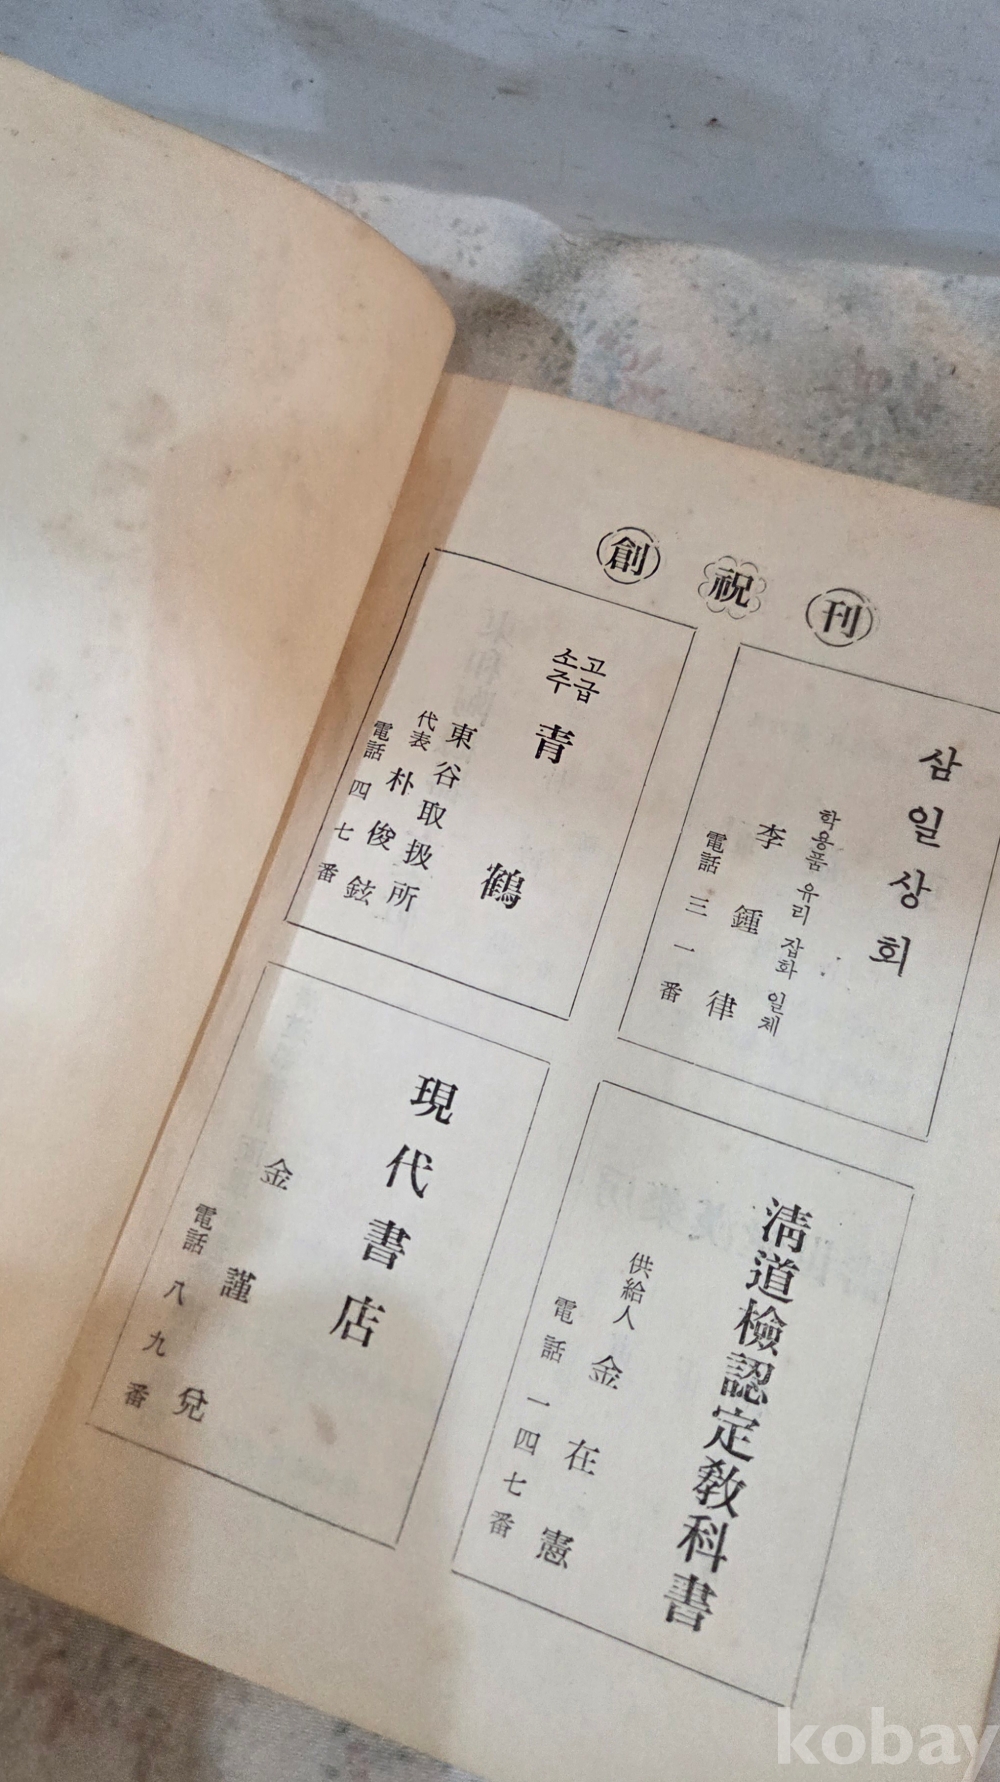 創 祝 刊
삼일상회
학용품 유리 잡화 일체
李鍾律
電話 三一番
고급
소주
青鶴
東谷取扱所
代表 朴俊鉉
電話 四七番
淸道檢認定敎科書
供給人 金在憲
電話 一四七番
現代書店
金謹兌
電話 八九番
kobay